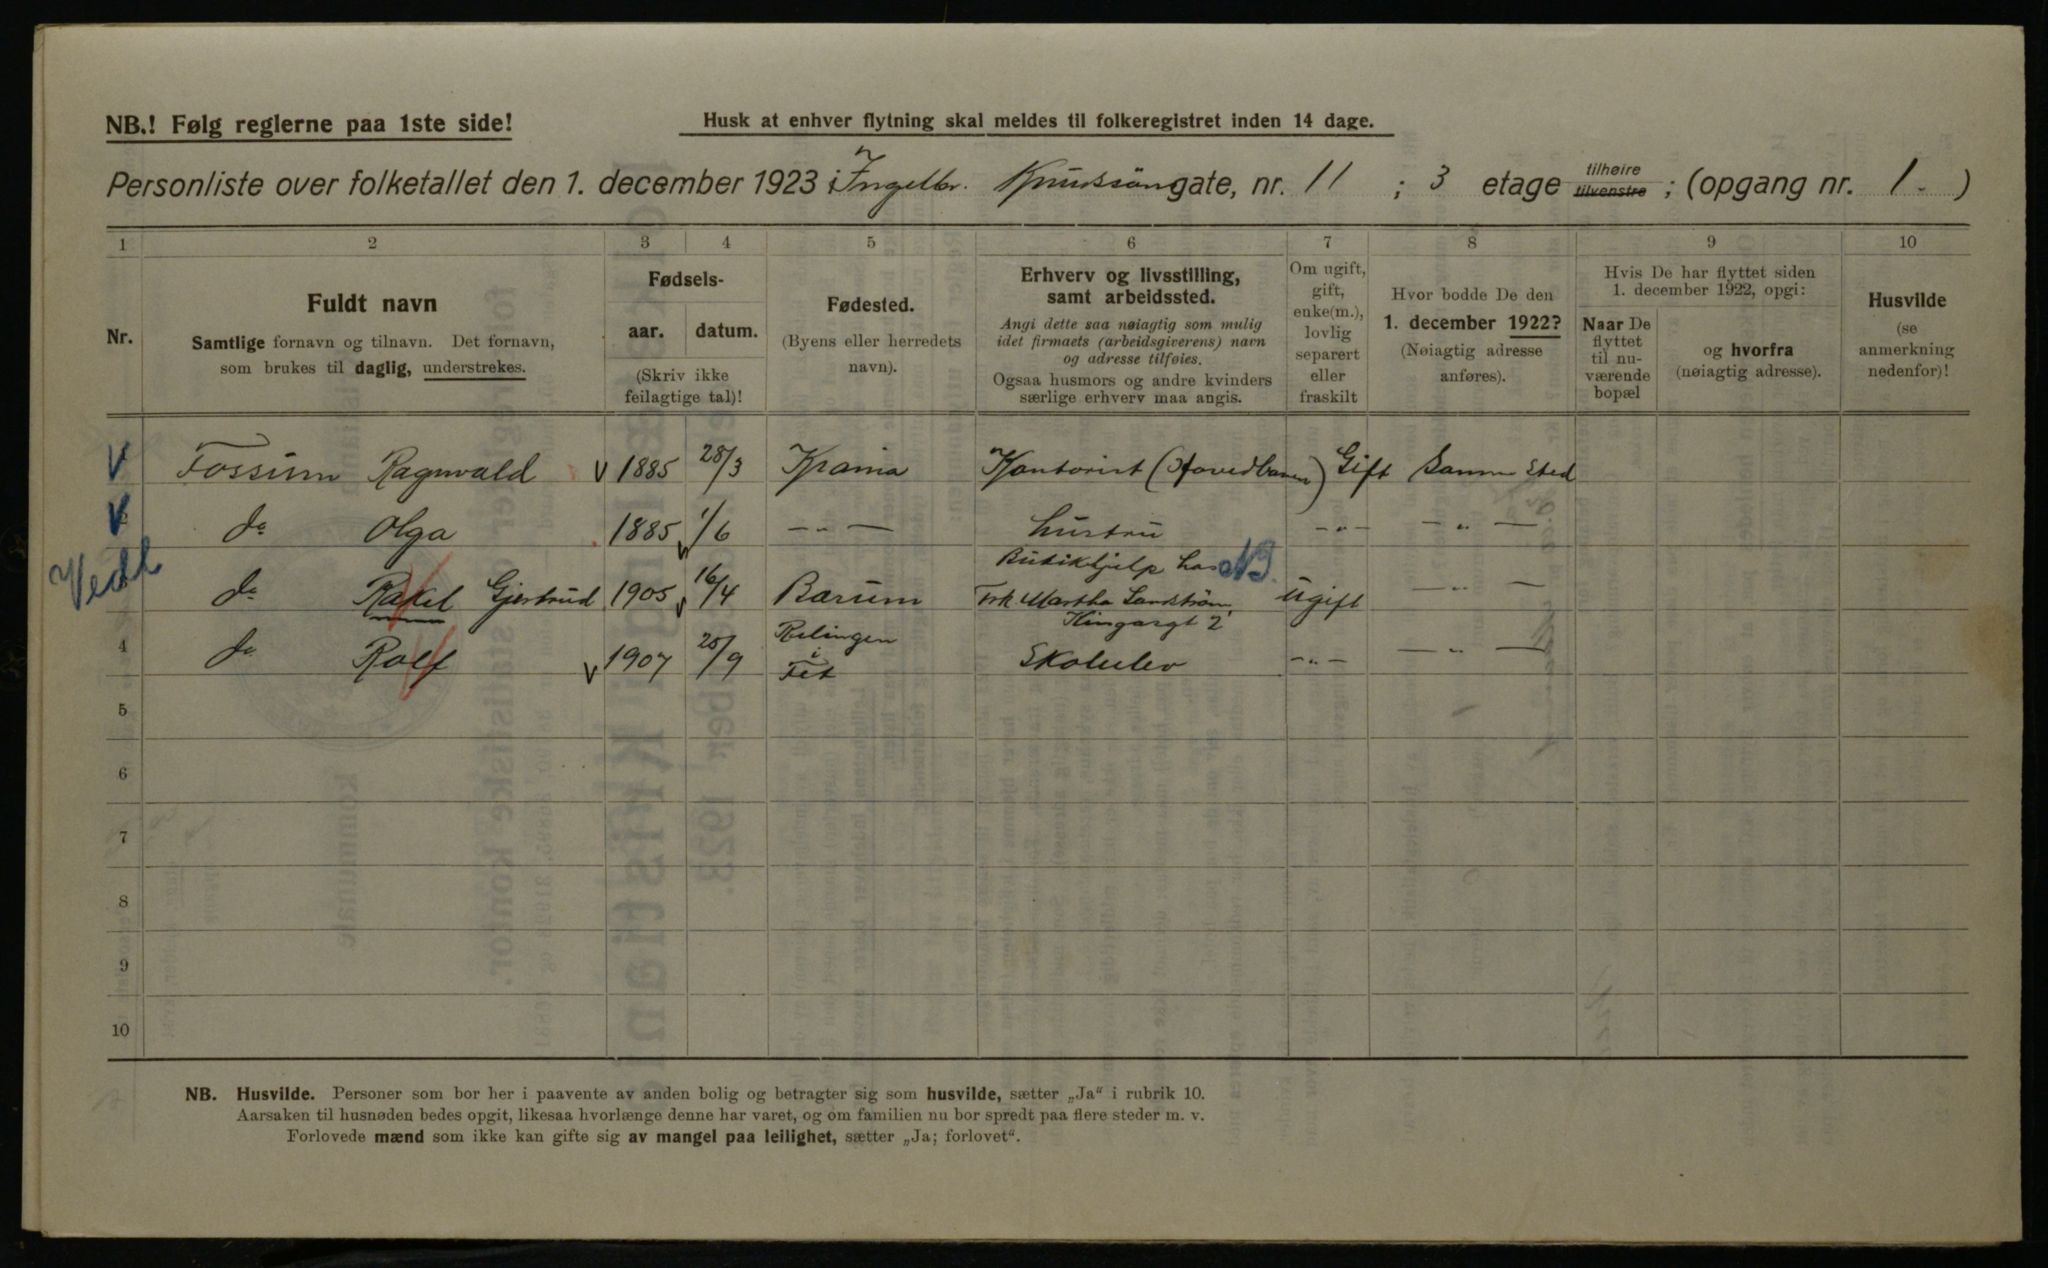 NB.! Følg reglerne paa 1ste side!
Husk at enhver flytning skal meldes til folkeregistret inden 14 dage.
Personliste over folketallet den 1. december 1923 i Ingelbr. Knudsöns gate, nr. 11 ; 3 etage tilhøire tilvenstre ; (opgang nr. 1. )
1 2 3 4 5 6 7 8 9 10
Nr.
Fuldt navn
Samtlige fornavn og tilnavn. Det fornavn,
som brukes til daglig, understrekes.
Fødsels-
aar. datum.
(Skriv ikke
feilagtige tal)!
Fødested.
(Byens eller herredets
navn).
Erhverv og livsstilling,
samt arbeidssted.
Angi dette saa nøiagtig som mulig
idet firmaets (arbeidsgiverens) navn
og adresse tilføies.
Ogsaa husmors og andre kvinders
særlige erhverv maa angis.
Om ugift,
gift,
enke(m.),
lovlig
separert
eller
fraskilt
Hvor bodde De den
1. december 1922?
(Nøiagtig adresse
anføres).
Hvis De har flyttet siden
1. december 1922, opgi:
Naar De
flyttet
til nu-
værende
bopæl
og hvorfra
(nøiagtig adresse).
Husvilde
(se
anmerkning
nedenfor)!
Fossum Ragnvald 1885 28/3 Krania Kontorist (Hovedbanen) Gift Samme Sted
do Olga 1885 1/6 — „ — Hustru — „ — — „ —
Vedl
Butikhjelp hos NB.
do Rakel Gjertrud 1905 16/4 Bærum Frk. Martha Sandström, Ugift — „ —
Kingosgt 2
4 do Rolf 1907 25/9 Relingen i Fet Skoleelev — „ — — „ —
5
6
7
8
9
10
NB. Husvilde. Personer som bor her i paavente av anden bolig og betragter sig som husvilde, sætter „Ja“ i rubrik 10.
Aarsaken til husnøden bedes opgit, likesaa hvorlænge denne har varet, og om familien nu bor spredt paa flere steder m. v.
Forlovede mænd som ikke kan gifte sig av mangel paa leilighet, sætter „Ja; forlovet“.